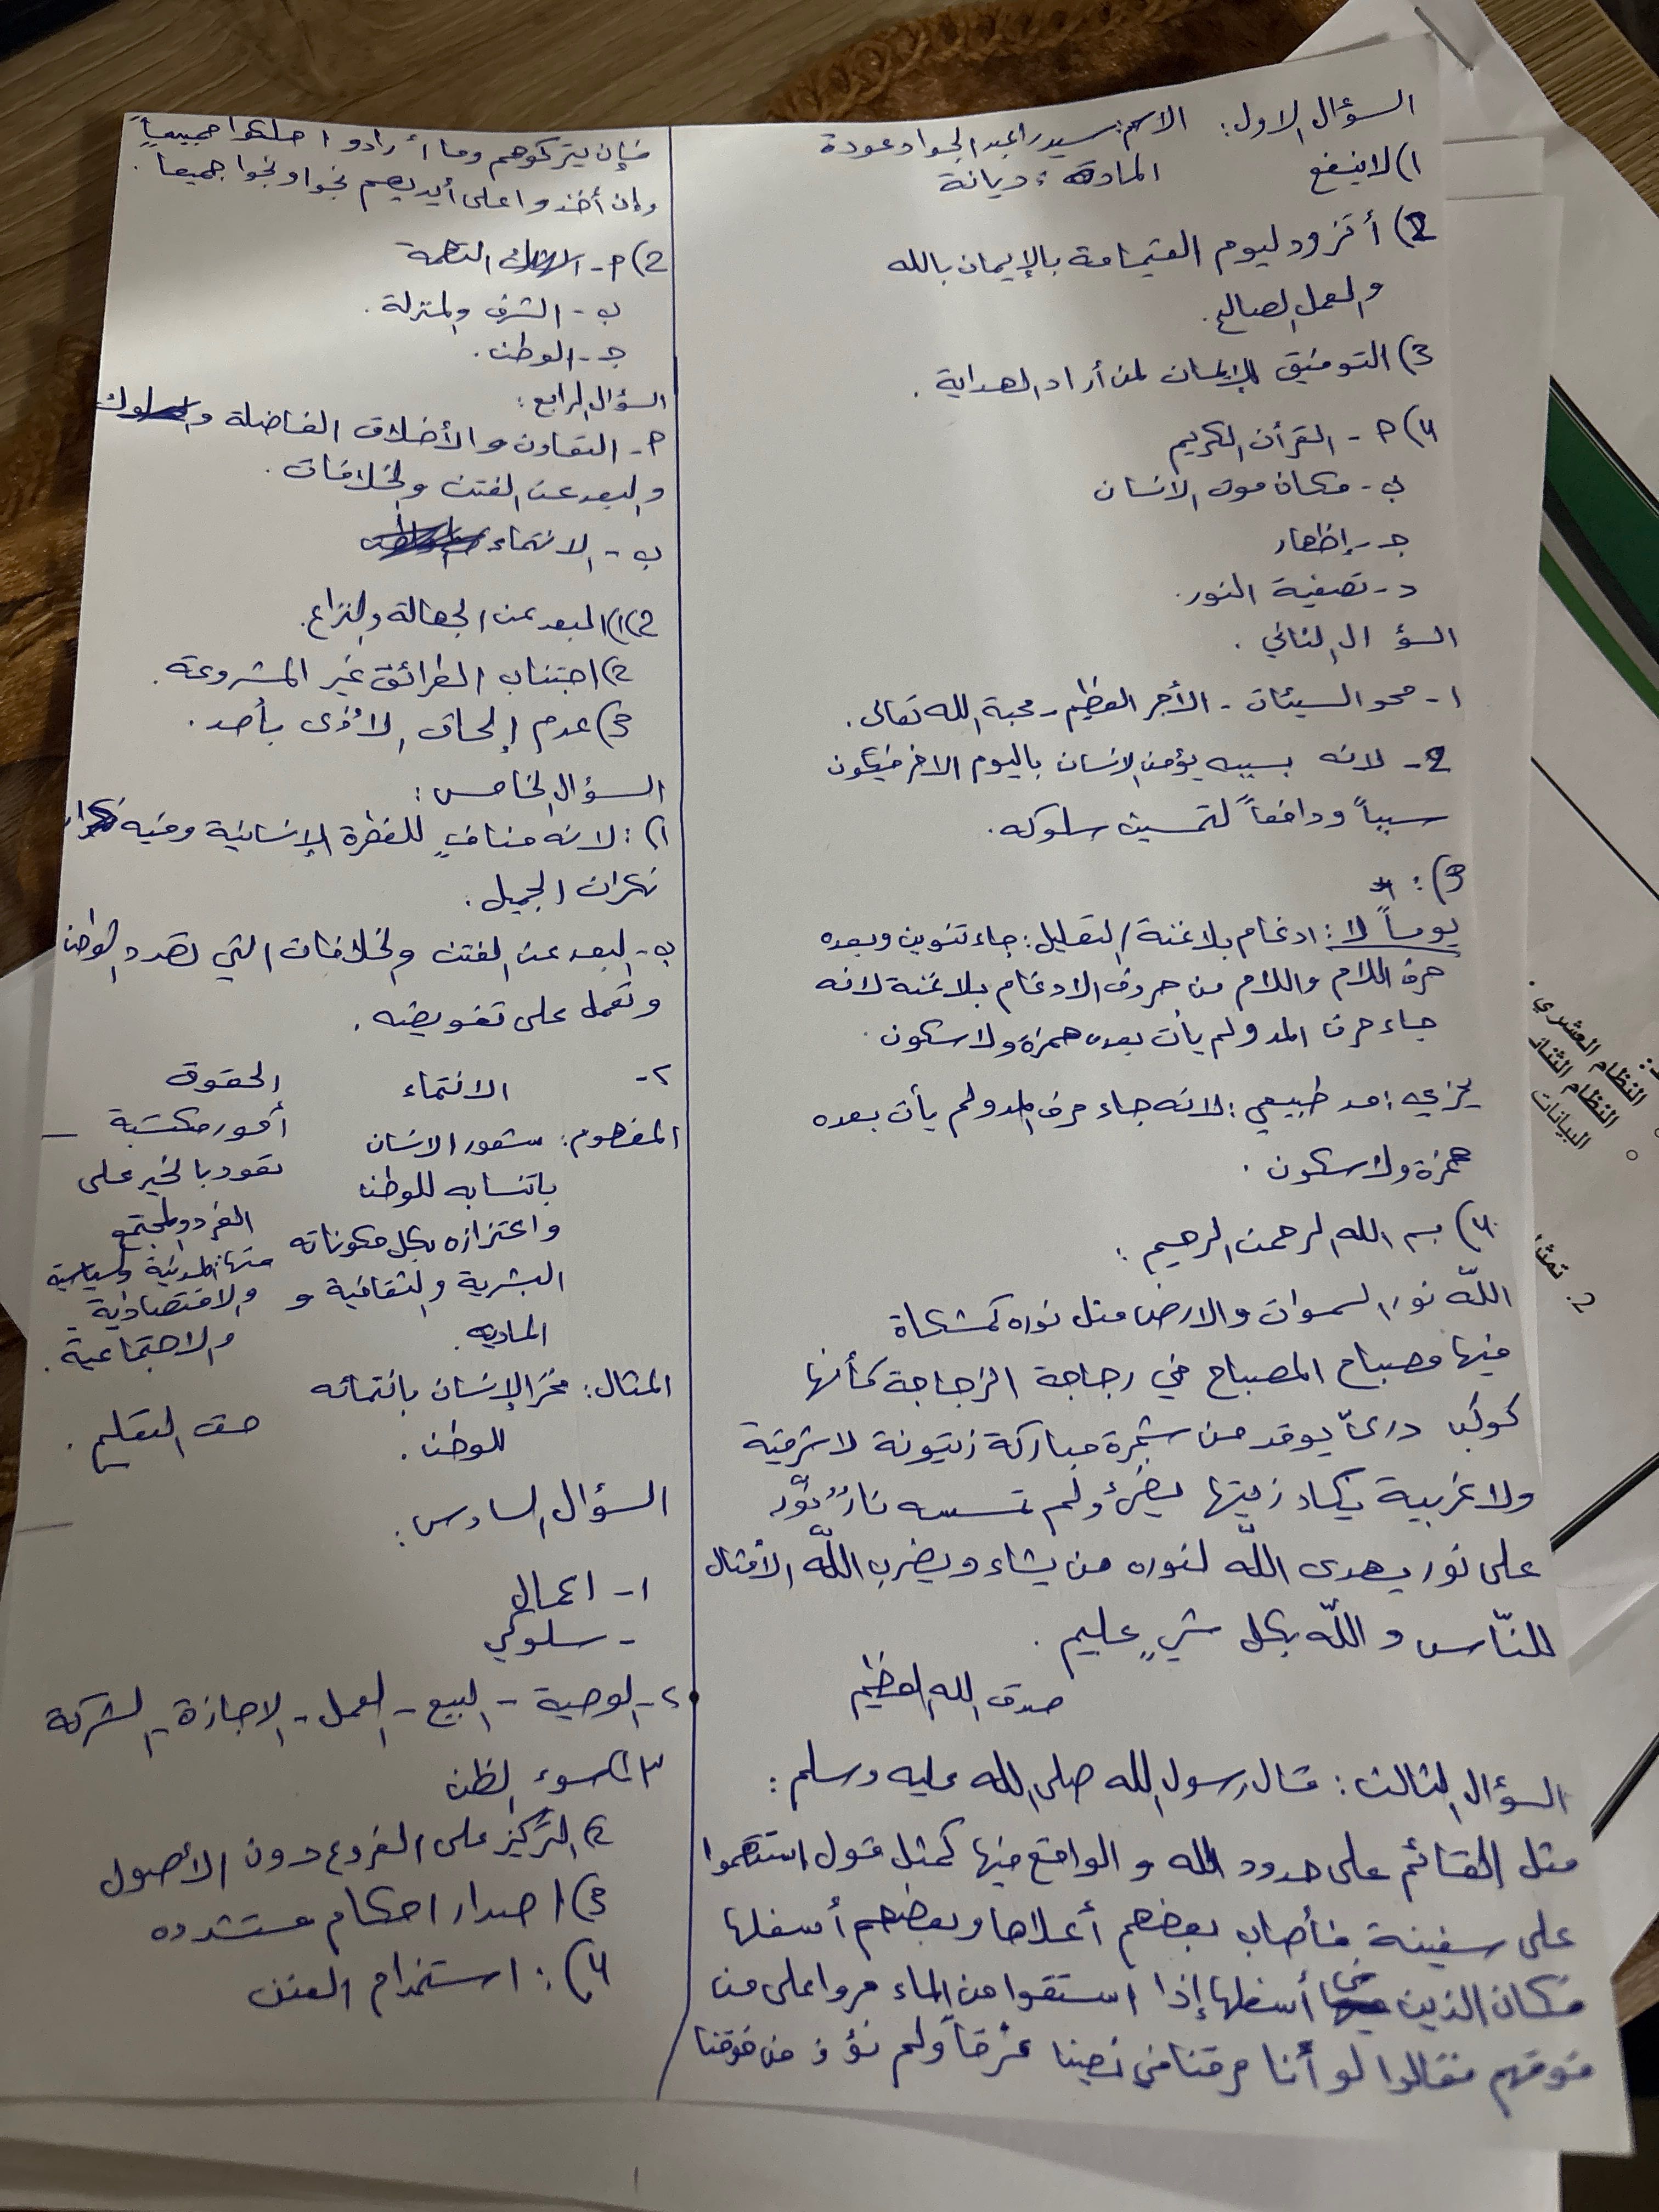 السؤال الاول: الاسم: سيدرا عبد الجواد عودة
1) لا ينفع المادة: ديانة
2) أتزود ليوم القيامة بالإيمان بالله
والعمل الصالح.
3) التوفيق للإيمان لمن أراد الهداية.
4) P - القرآن الكريم
ب - مكان موت الانسان
جـ - إظهار
د - تصفية النور.
السؤال الثاني.
1 - محو السيئات - الأجر العظيم - محبة الله تعالى.
2 - لانه بسببه يؤمن الانسان باليوم الاخر فيكون
سبباً ودافعاً لتحسين سلوكه.
3):
يوماً لا: ادغام بلا غنة / التعليل: جاء تنوين وبعده
حرف اللام واللام من حروف الادغام بلا غنة لانه
جاء حرف المد ولم يأت بعده همزة ولا سكون.
يجزي: مد طبيعي: لانه جاء حرف المد ولم يأت بعده
همزة ولا سكون.
4) بسم الله الرحمن الرحيم:
اللّه نور السموات والارض مثل نوره كمشكاة
فيها مصباح المصباح في زجاجة الزجاجة كأنها
كوكب دريّ يوقد من شجرة مباركة زيتونة لا شرقية
ولا غربية يكاد زيتها يضيء ولم تمسسه نارٌ نورٌ
على نور يهدي اللّه لنوره من يشاء ويضرب اللّه الأمثال
للنّاس و اللّه بكل شيءٍ عليم.
صدق الله العظيم
السؤال الثالث: قال رسول الله صلى الله عليه وسلم:
مثل القائم على حدود الله و الواقع فيها كمثل قول استهموا
على سفينة فأصاب بعضهم أعلاها وبعضهم أسفلها
فكان الذين في أسفلها إذا استقوا من الماء مروا على من
فوقهم فقالوا لو أنا خرقنا في نصيبنا خرقاً ولم نؤذ من فوقنا
فإن يتركوهم وما أرادوا هلكوا جميعاً
وإن أخذوا على أيديهم نجوا ونجوا جميعاً.
2) P - التهمة
ب - الشرف والمنزلة.
جـ - الوطن.
السؤال الرابع:
P - التعاون والأخلاق الفاضلة
والبعد عن الفتن والخلافات.
ب - الانتماء
2) 1) البعد عن الجهالة والنزاع.
2) اجتناب الطرائق غير المشروعة.
3) عدم إلحاق الأذى بأحد.
السؤال الخامس:
1): لانه منافٍ للفطرة الإنسانية وفيه
نكران الجميل.
ب - البعد عن الفتن والخلافات التي تهدد الوطن
وتعمل على تقويضه.
2 - الانتماء الحقوق
المفهوم: شعور الانسان أمور مكتسبة
بانتسابه للوطن تعود بالخير على
واعتزازه بكل مكوناته الفرد والمجتمع
البشرية والثقافية و منها المدنية والسياسية
المادية. والاقتصادية
والاجتماعية.
المثال: فخر الإنسان بانتمائه
للوطن. حق التعليم.
السؤال السادس:
1 - اعمال
- سلوكي
2 - الوصية - البيع - العمل - الاجازة - الشركة
3 1) سوء الظن
2) التركيز على الفروع دون الأصول
3) اصدار احكام متشدده
4): استخدام العنف
النظام العشري.
النظام الثنائي
البيانات
2. تمثا